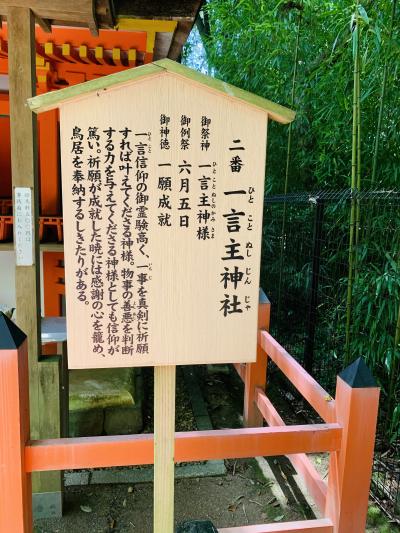 二番 一言主神社
ひと こと ぬし じん じゃ
御祭神 一言主神様
ひと こと ぬしの かみ さま
御例祭 六月五日
御神徳 一願成就
一言信仰の御霊験高く、一事を真剣に祈願
ひと こと
すれば叶えてくださる神様。物事の善悪を判断
する力を与えてくださる神様としても信仰が
篤い。祈願が成就した暁には感謝の心を籠め、
鳥居を奉納するしきたりがある。